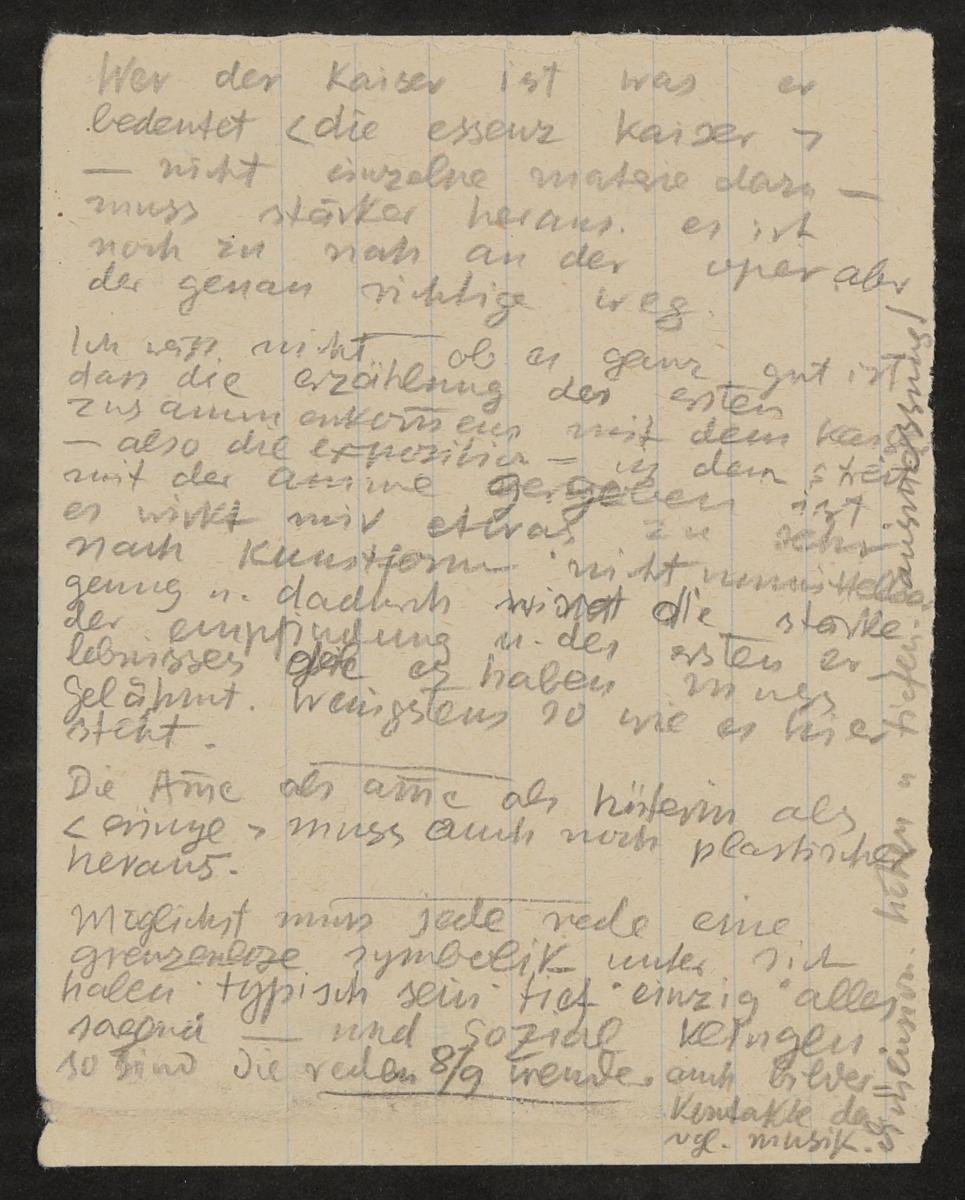 Wer der Kaiser ist was er
bedeutet < die essenz Kaiser >
— nicht einzelne materie dazu —
muss stärker heraus. es ist
noch zu nah an der oper aber
der genau richtige weg.
Ich weiss nicht ob es ganz gut ist
dass die erzählung des ersten
zusammenkom̅ens mit dem Kaiser
— also die exposition — in dem streit
mit der amme gegeben ist
es wirkt mir etwas zu sehr
nach Kunstform nicht unmittelbar
genug u. dadurch wird die stärke
der empfindung u. des ersten er-
lebnisses die es haben muss
gelähmt. Wenigstens so wie es hier
steht.
Die Am̅e als am̅e als hüterin als
< einzige > muss auch noch plastischer
heraus.
Möglichst muss jede rede eine
grenzenlose symbolik unter sich
haben typisch sein tief einzig alles
sagend — und sozial klingen
so sind die reden 8/9 wende. auch bilder
Kontakte
vgl. musik.
höhen u tiefen.